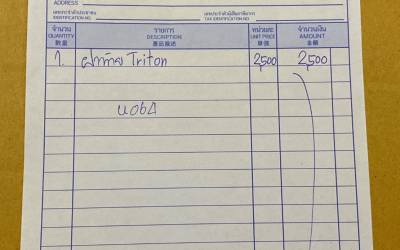 ADDRESS
เลขประจำตัวประชาชน
IDENTIFICATION NO.
เลขประจำตัวผู้เสียภาษีอากร
TAX IDENTIFICATION NO.
จำนวน รายการ หน่วยละ จำนวนเงิน
QUANTITY DESCRIPTION UNIT PRICE AMOUNT
數量 單價 金額
1. ฝาท้าย Triton 2,500 2,500